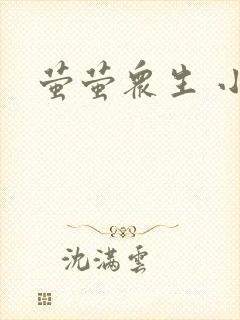 萤萤众生 小
沈满云